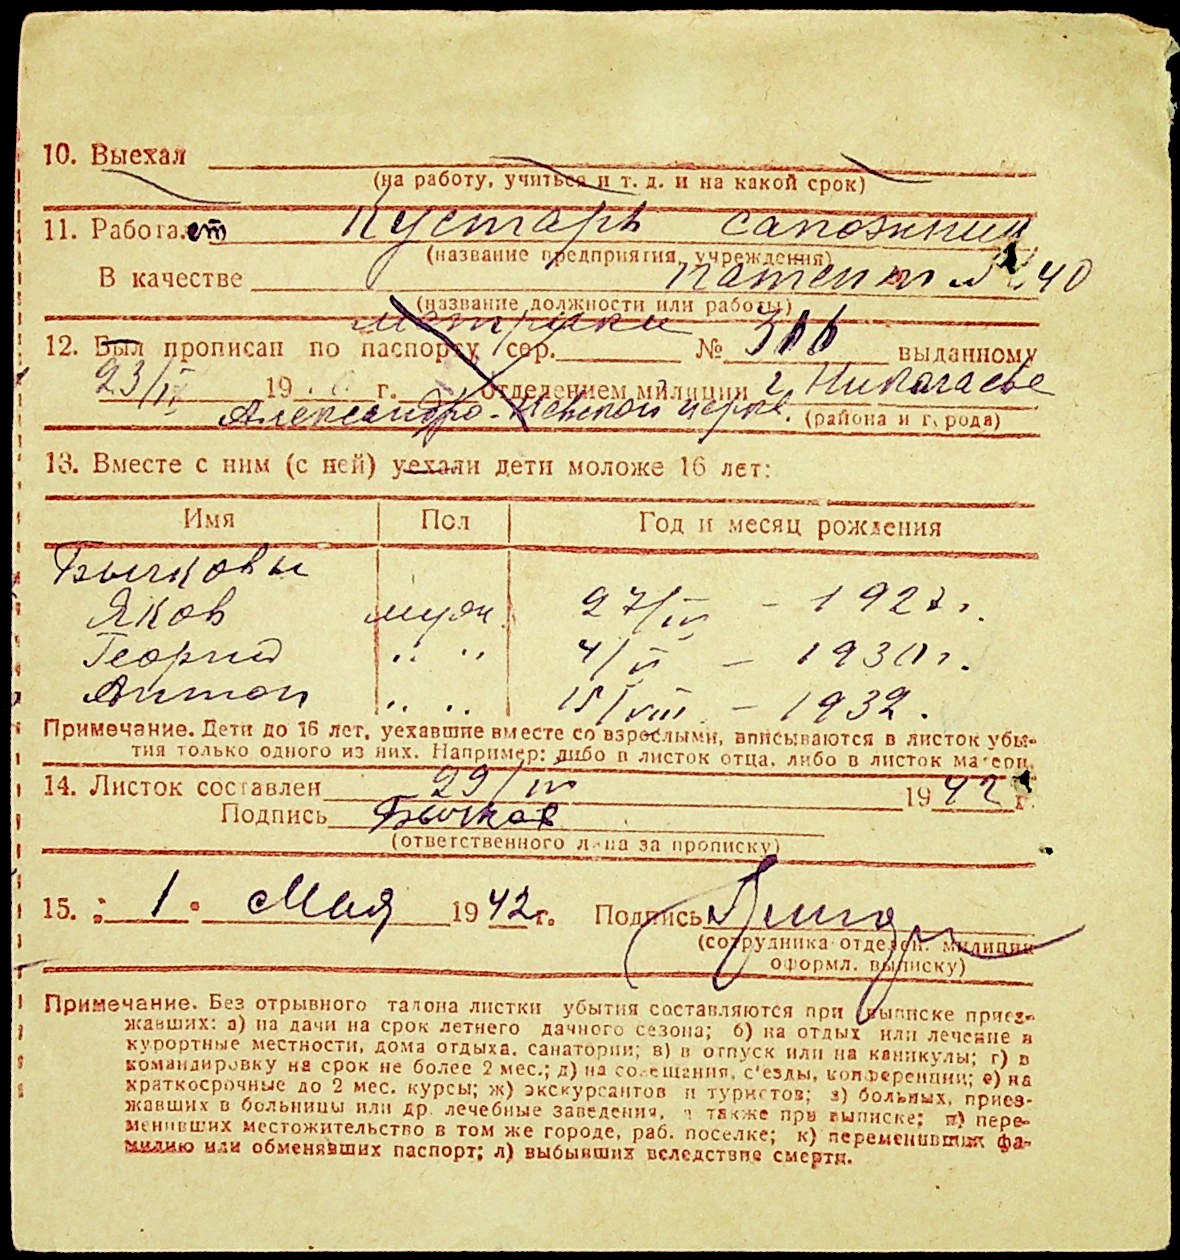 10. Выехал
(на работу, учиться и т. д. и на какой срок)
11. Работает Кустарь сапожник
(название предприятия, учреждения)
В качестве патент № 240
(название должности или работы)
метрики
12. Был прописан по паспорту, сер. № 366 выданному
23/IV 19 г. отделением милиции г. Николаеве
Александро-Невской церкв. (района и города)
13. Вместе с ним (с ней) уехали дети моложе 16 лет:
Имя Пол Год и месяц рождения
Бычковы
Яков муж. 27/IV - 1927.
Георгий " " 4/V - 1930 г.
Антон " " 15/VIII - 1932.
Примечание. Дети до 16 лет, уехавшие вместе со взрослыми, вписываются в листок убы-
тия только одного из них. Например: либо в листок отца, либо в листок матери.
14. Листок составлен 29/IV 1942 г.
Подпись Бычков
(ответственного лица за прописку)
15. „1" Мая 1942 г. Подпись
(сотрудника отделен. милиции
оформл. выписку)
Примечание. Без отрывного талона листки убытия составляются при выписке приез-
жавших: а) на дачи на срок летнего дачного сезона; б) на отдых или лечение в
курортные местности, дома отдыха, санатории; в) в отпуск или на каникулы; г) в
командировку на срок не более 2 мес.; д) на совещания, с'езды, конференции; е) на
краткосрочные до 2 мес. курсы; ж) экскурсантов и туристов; з) больных, приез-
жавших в больницы или др. лечебные заведения, а также при выписке; и) пере-
менивших местожительство в том же городе, раб. поселке; к) переменивших фа-
милию или обменявших паспорт; л) выбывших вследствие смерти.